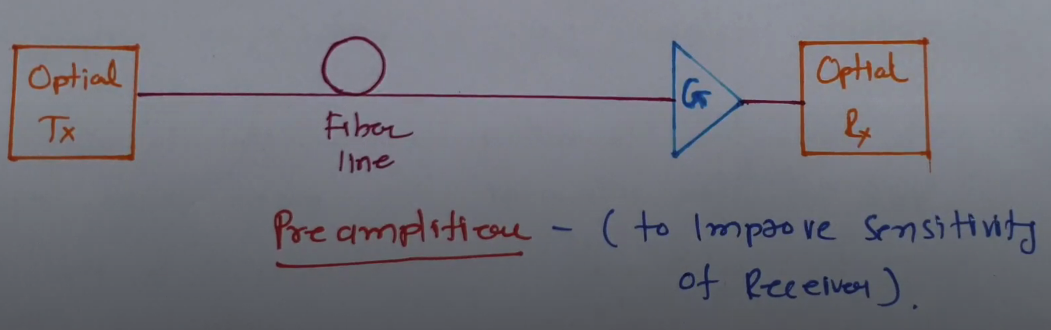 Optial
Tx
Fiber
line
G
Optial
Rx
Preamplifieer - ( to Improve Sensitivity
of Receiver ).